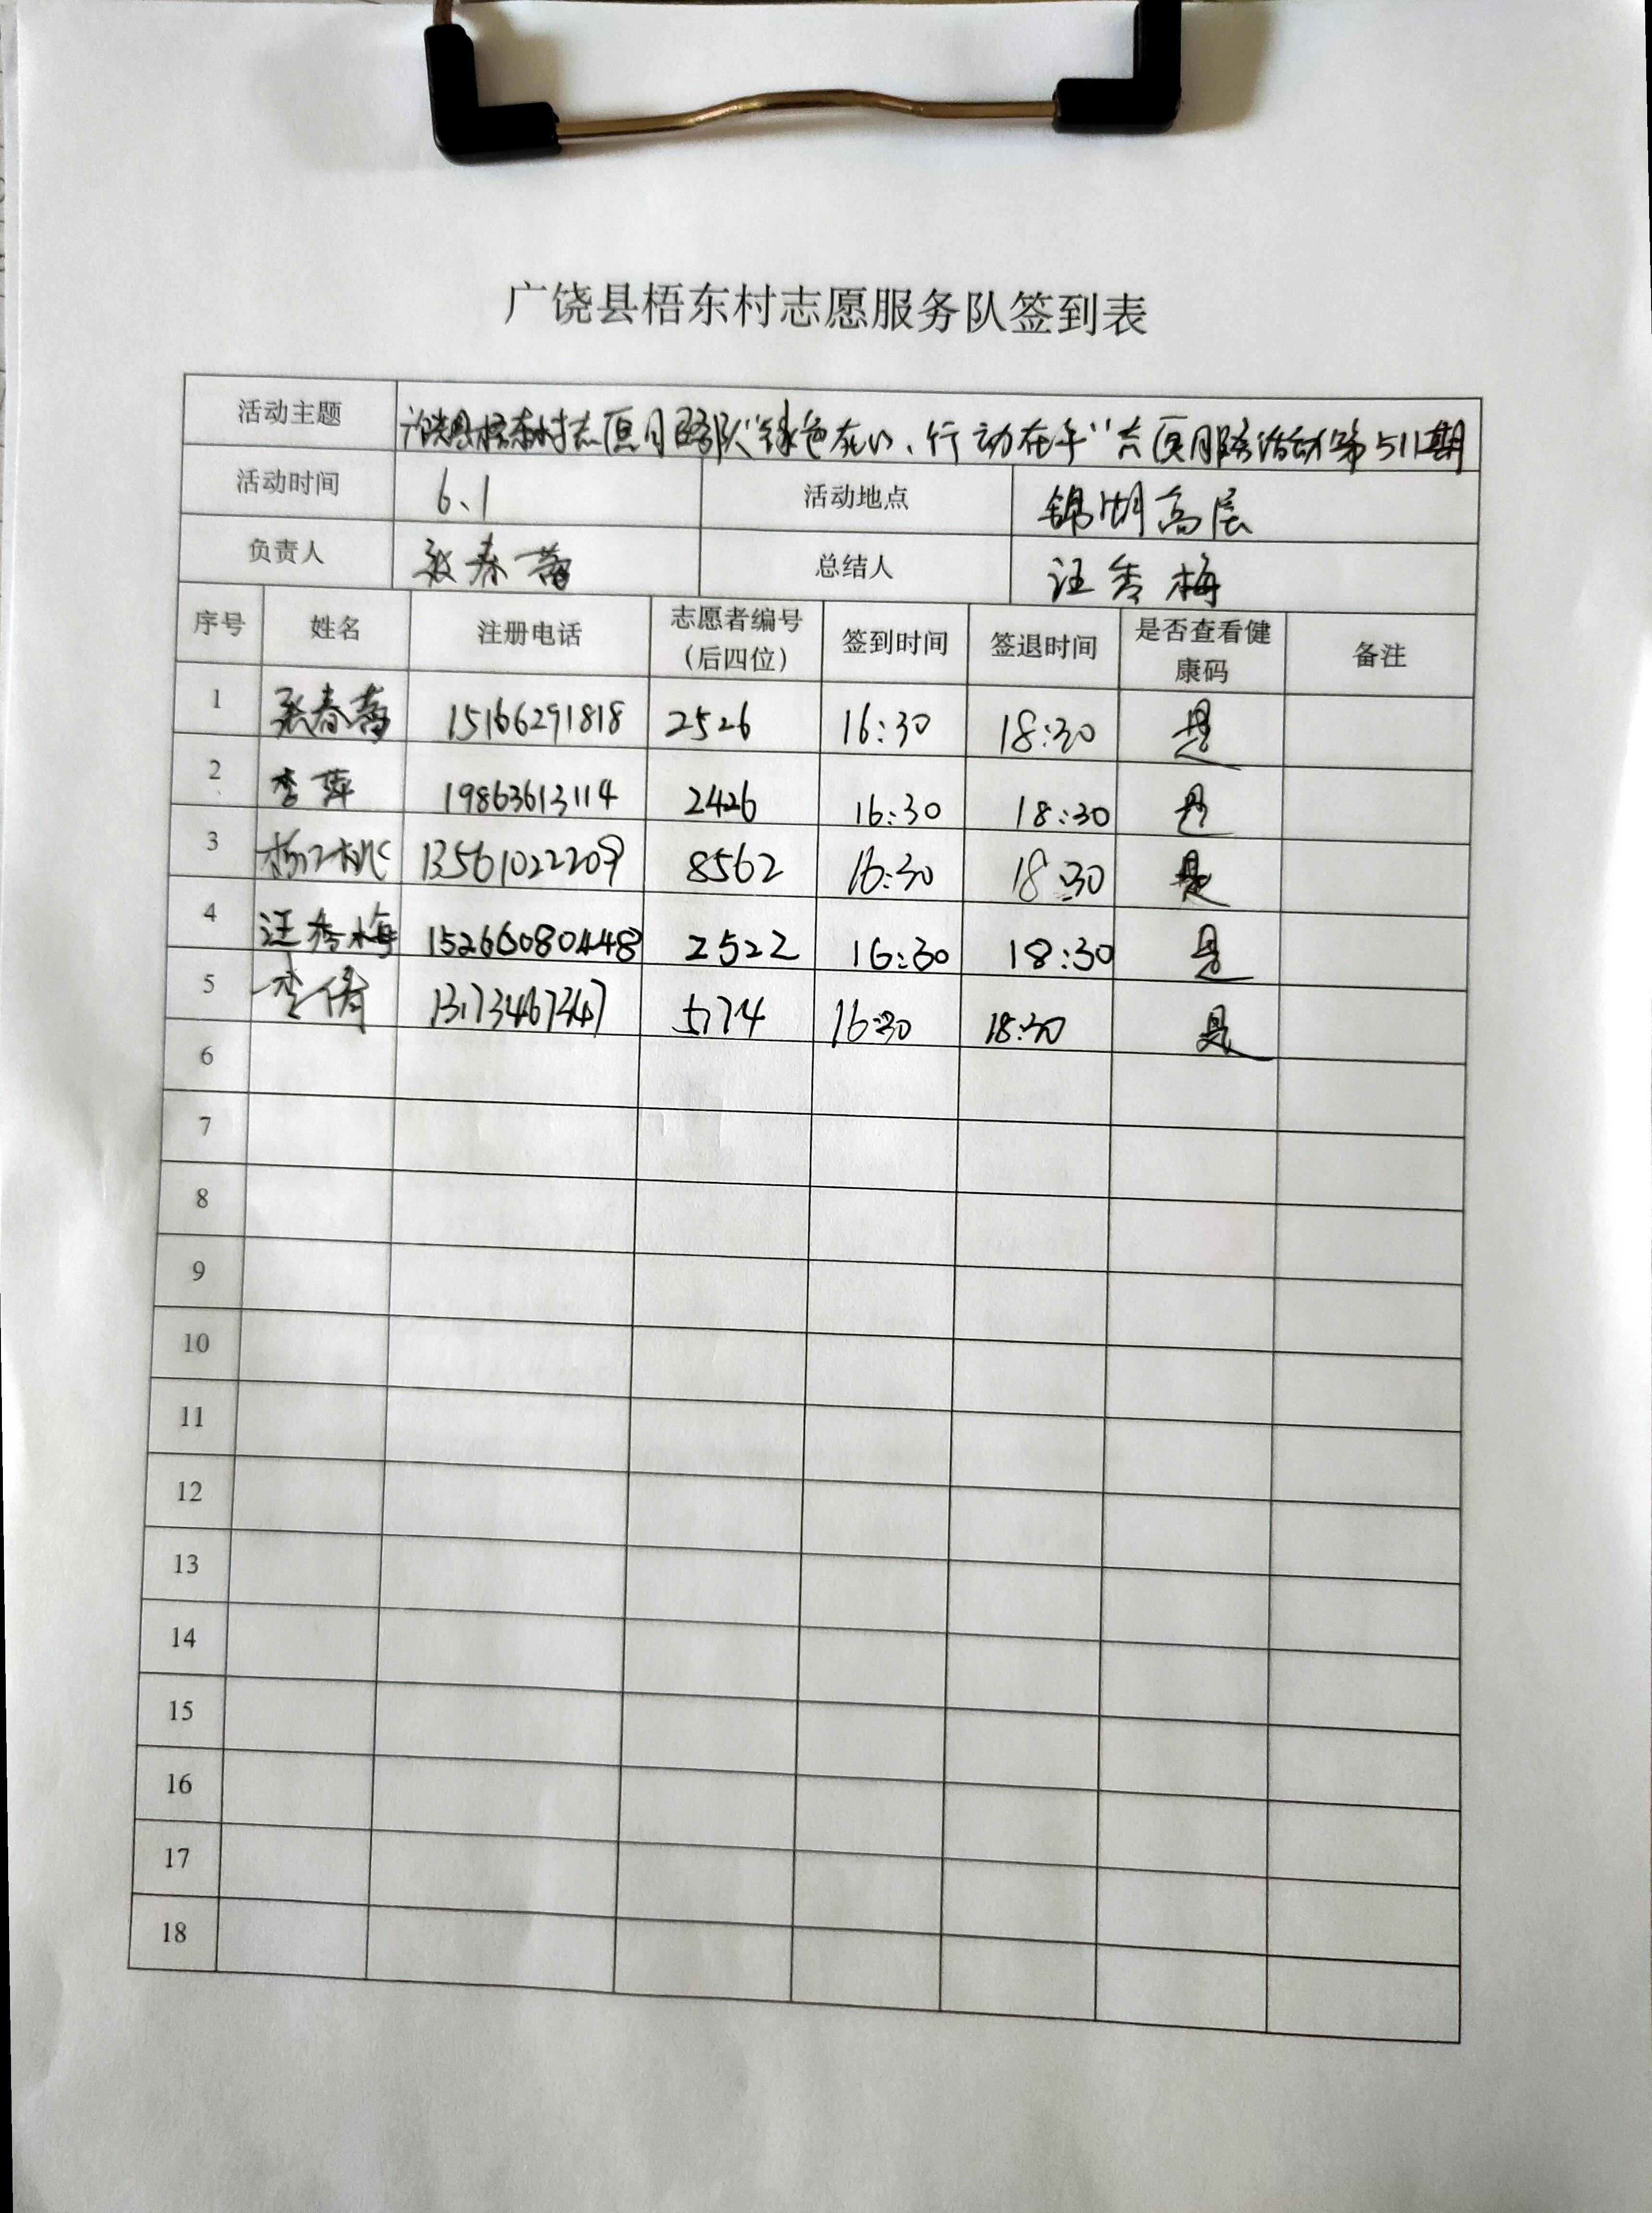 广饶县梧东村志愿服务队签到表
活动主题 广饶县梧东村志愿服务队“绿色在心、行动在手”志愿服务活动第511期
活动时间 6.1 活动地点 锦湖高层
负责人 张春蕾 总结人 汪秀梅
序号 姓名 注册电话 志愿者编号（后四位） 签到时间 签退时间 是否查看健康码 备注
1 张春蕾 15166291818 2526 16:30 18:30 是
2 李萍 19863613114 2426 16:30 18:30 是
3 13561022209 8562 16:30 18:30 是
4 汪秀梅 15266080448 2522 16:30 18:30 是
5 李倩 13173467347 5174 16:30 18:30 是
6
7
8
9
10
11
12
13
14
15
16
17
18